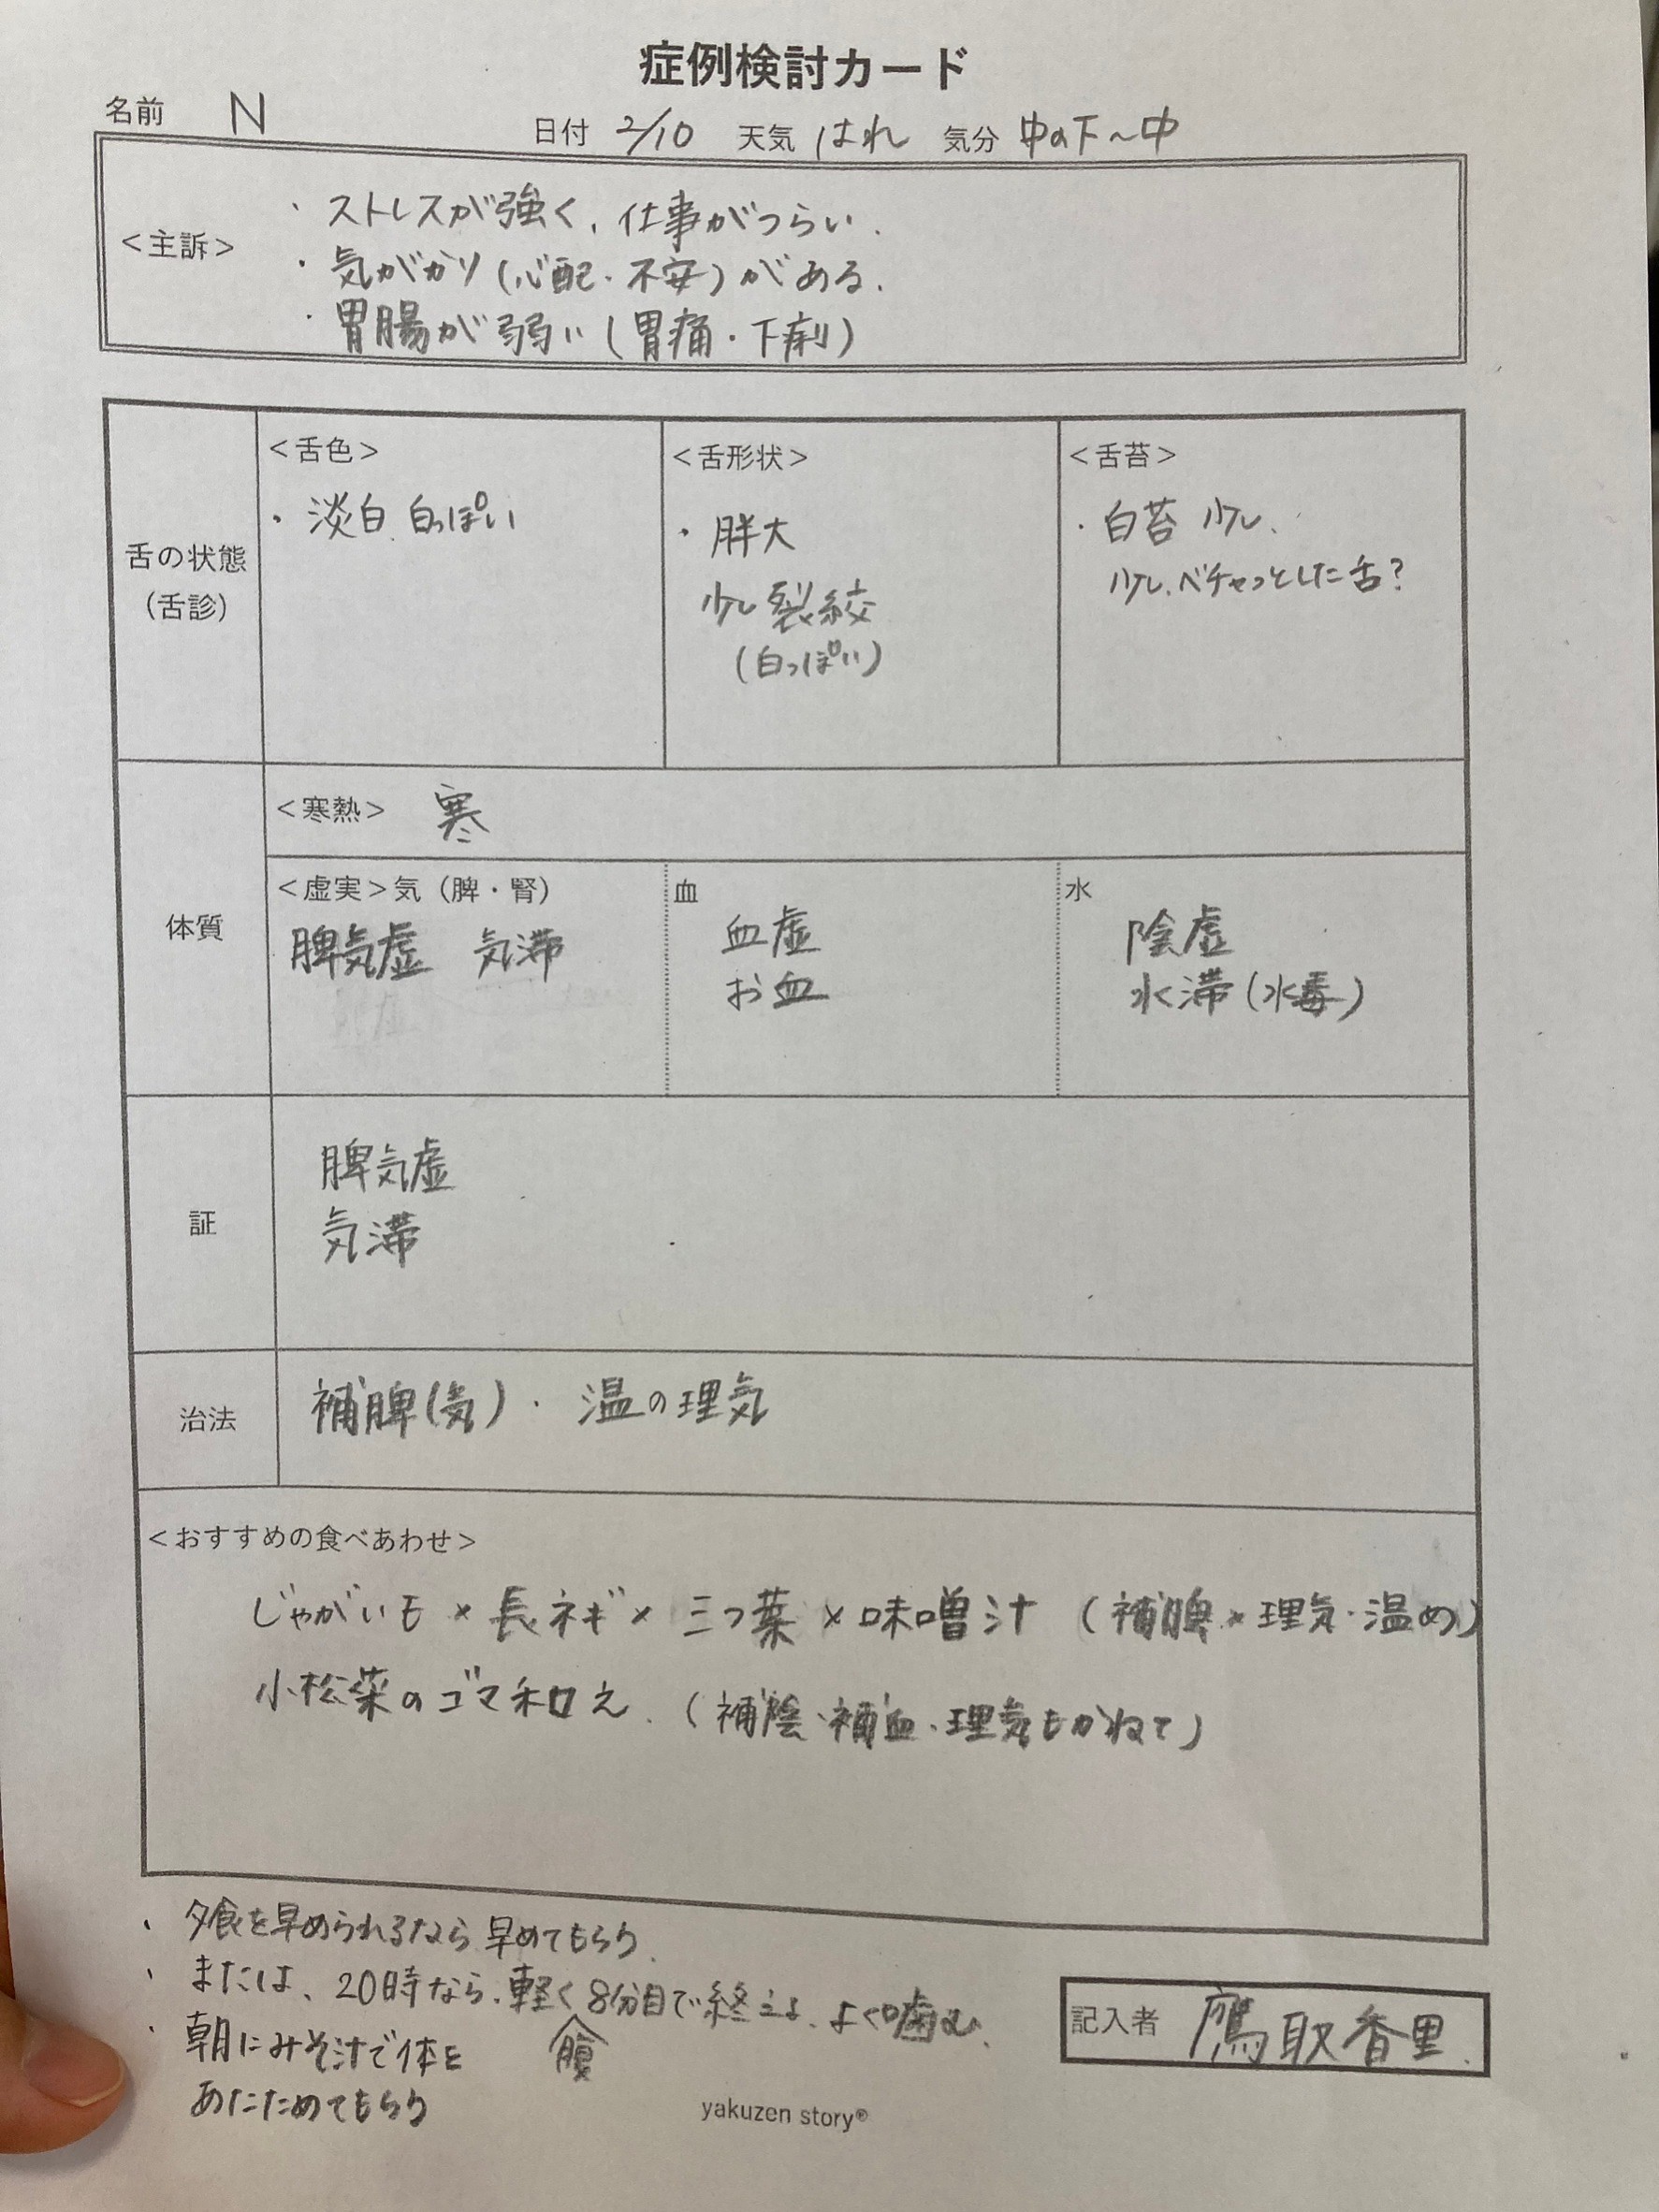 症例検討カード
名前 N
日付 2/10 天気 はれ 気分 中の下〜中
<主訴>
・ストレスが強く、仕事がつらい.
・気がかり(心配・不安)がある.
・胃腸が弱い(胃痛・下痢)
舌の状態
(舌診)
<舌色>
・淡白 白っぽい
<舌形状>
・胖大
少し裂紋
(白っぽい)
<舌苔>
・白苔 少し、
少し、ベチャっとした舌?
体質
<寒熱> 寒
<虚実>気(脾・腎)
脾気虚 気滞
血
血虚
お血
水
陰虚
水滞(水毒)
証
脾気虚
気滞
治法
補脾(気)・温の理気
<おすすめの食べあわせ>
じゃがいも×長ネギ×三つ葉×味噌汁 (補脾×理気・温め)
小松菜のゴマ和え.(補陰・補血・理気もかねて)
・夕食を早められるなら早めてもらう.
・または、20時なら、軽く8分目で終える、よく噛む、
腹
・朝にみそ汁で体を
あたためてもらう
記入者 鷹取香里.
yakuzen story®